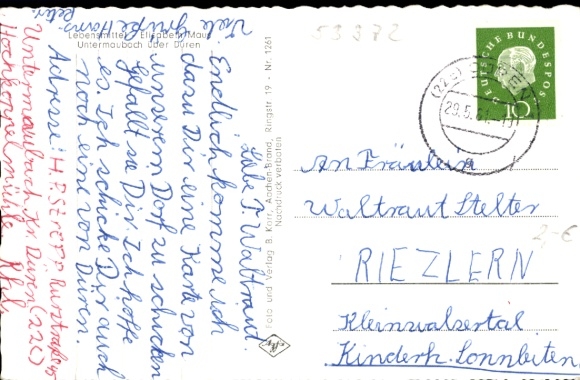 Lebensmittel Elisabeth Maus
Untermaubach über Düren
Foto und Verlag B. Korr, Aachen-Brand, Ringstr. 19 - Nr. 1261
Nachdruck verboten
Liebe T. Waltraud.
Endlich komme ich
dazu Dir eine Karte von
unserem Dorf zu schicken
Gefällt sie Dir. Ich hoffe
es. Ich schicke Dir auch
noch eine von Düren.
Viele Grüße Hans-
Peter.
Adresse: H. P. Kurztraße
Untermaubach Kr. Düren (22c)
Hochkoppelmühle Rhld.
53372
DEUTSCHE BUNDESPOST
10
29.5.61
An Fräulein
Waltraut Stelter
2,-€
RIEZLERN
Kleinwalsertal
Kinderh. Sonnleiten